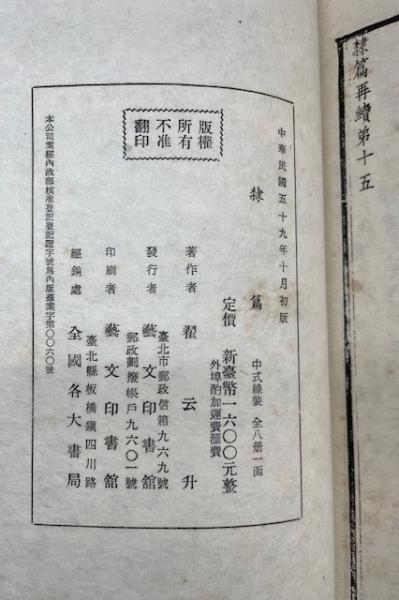 隸篇再續第十五
中華民國五十九年十月初版
隸篇
中式線裝 全八册一函
定價 新臺幣一六〇〇元整
外埠酌加運費滙費
版權所有不准翻印
著作者 翟云升
臺北市郵政信箱九六九號
發行者 藝文印書館
郵政劃撥帳戶九六〇一號
印刷者 藝文印書館
臺北縣板橋鎮四川路
經銷處 全國各大書局
本公司業經內政部核准登記登記證字號爲內版臺業字第〇〇六〇號